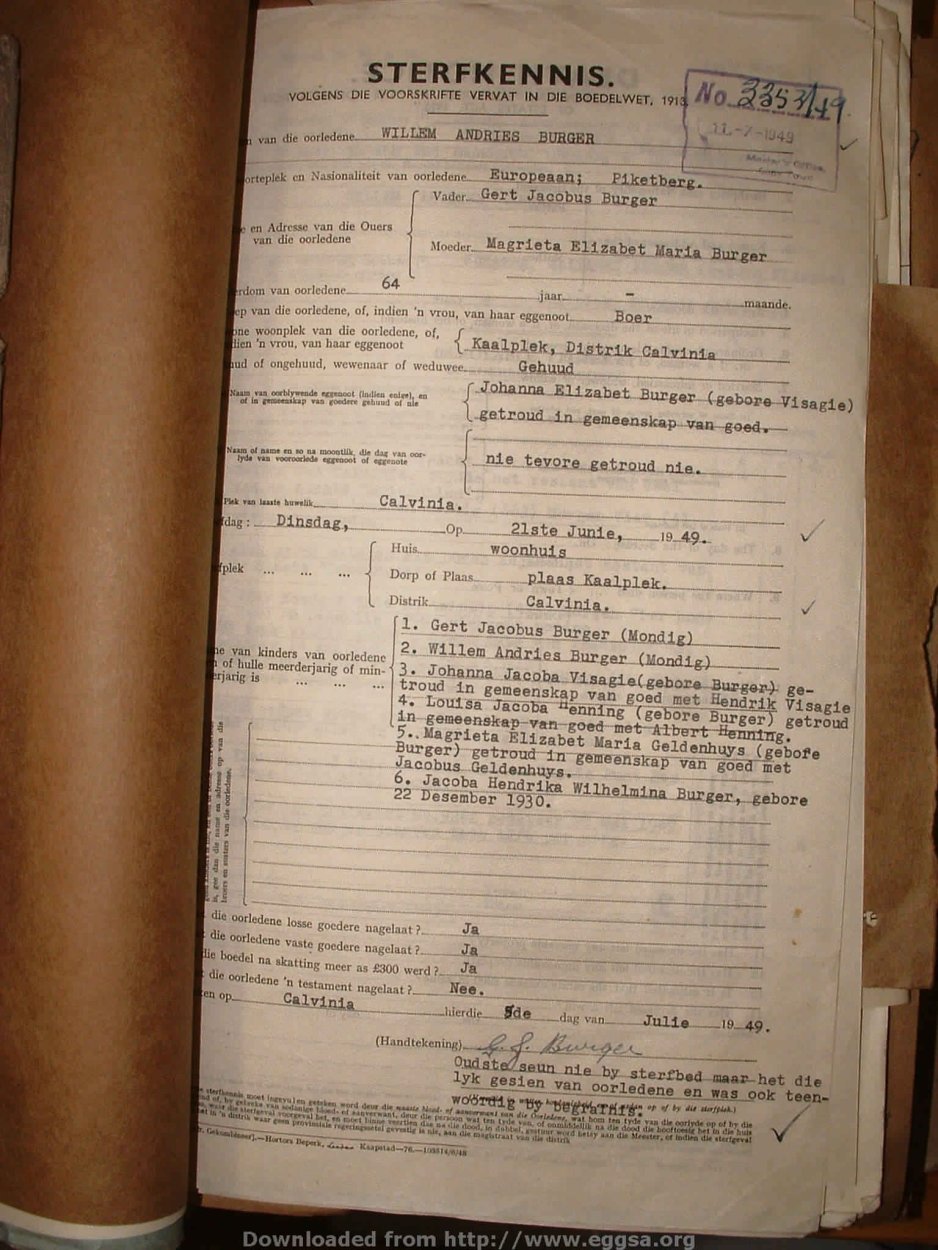 STERFKENNIS.
VOLGENS DIE VOORSKRIFTE VERVAT IN DIE BOEDELWET, 1913
No 3353/49
11.-7-1949
Master's Office
Cape Town
van die oorledene WILLEM ANDRIES BURGER
orteplek en Nasionaliteit van oorledene Europeaan; Piketberg.
Vader Gert Jacobus Burger
e en Adresse van die Ouers
van die oorledene
Moeder Magrieta Elizabet Maria Burger
erdom van oorledene 64 jaar - maande.
ep van die oorledene, of, indien 'n vrou, van haar eggenoot Boer
one woonplek van die oorledene, of,
dien 'n vrou, van haar eggenoot
Kaalplek, Distrik Calvinia
uud of ongehuud, wewenaar of weduwee Gehuud
Naam van oorblywende eggenoot (indien enige), en
of in gemeenskap van goedere gehuud of nie
Johanna Elizabet Burger (gebore Visagie)
getroud in gemeenskap van goed.
Naam of name en so na moontlik, die dag van oor-
lyde van vooroorlede eggenoot of eggenote
nie tevore getroud nie.
Plek van laaste huwelik Calvinia.
fdag: Dinsdag, Op 21ste Junie, 19 49.
Huis woonhuis
fplek ... ... ... Dorp of Plaas plaas Kaalplek.
Distrik Calvinia.
ne van kinders van oorledene
of hulle meerderjarig of min-
erjarig is ... ... ...
1. Gert Jacobus Burger (Mondig)
2. Willem Andries Burger (Mondig)
3. Johanna Jacoba Visagie(gebore Burger) ge-
troud in gemeenskap van goed met Hendrik Visagie
4. Louisa Jacoba Henning (gebore Burger) getroud
in gemeenskap van goed met Albert Henning.
5. Magrieta Elizabet Maria Geldenhuys (gebore
Burger) getroud in gemeenskap van goed met
Jacobus Geldenhuys.
6. Jacoba Hendrika Wilhelmina Burger, gebore
22 Desember 1930.
gee dan die name en adresse op van die
broers en susters van die oorledene.
die oorledene losse goedere nagelaat? Ja
die oorledene vaste goedere nagelaat? Ja
die boedel na skatting meer as £300 werd? Ja
die oorledene 'n testament nagelaat? Nee.
ken op Calvinia hierdie 5de dag van Julie 19 49.
(Handtekening) G. J. Burger
Oudste seun nie by sterfbed maar het die
lyk gesien van oorledene en was ook teen-
woordig by begrafnis.
Kaapstad
Downloaded from http://www.eggsa.org